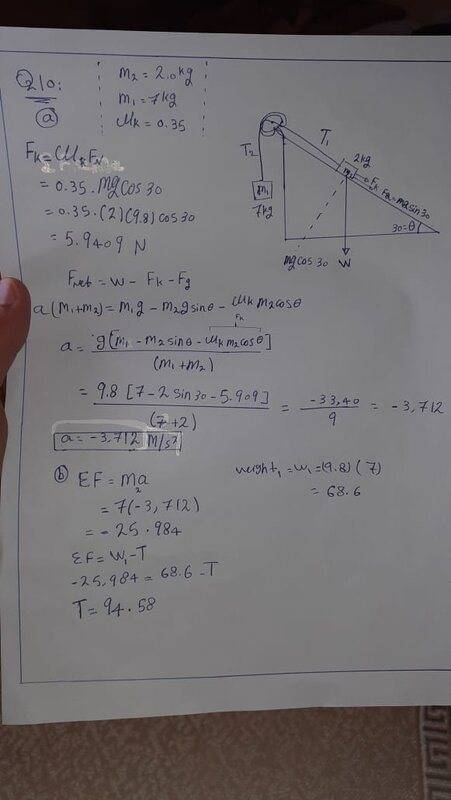 Q10:
m₂ = 2.0kg
m₁ = 7kg
μk = 0.35
(a)
Fk = μk FN
= 0.35 . mg cos 30
= 0.35 . (2)(9.8) cos 30
= 5.9409 N
T₂
T₁
m₁
7kg
2kg
m₂
Fk
Fg = mg sin 30
30 = θ
mg cos 30
W
Fnet = W - Fk - Fg
a (m₁+m₂) = m₁g - m₂g sinθ - μk m₂ cosθ
Fk
a = g[m₁ - m₂ sinθ - μk m₂ cosθ] / (m₁+m₂)
= 9.8 [7 - 2 sin 30 - 5.909] / (7+2) = -33,40 / 9 = -3,712
a = -3,712 m/s²
(b) ΣF = m₂a
= 7(-3,712)
= -25.984
ΣF = W₁ - T
-25,984 = 68.6 - T
T = 94.58
weight₁ = W₁ = (9.8)(7)
= 68.6